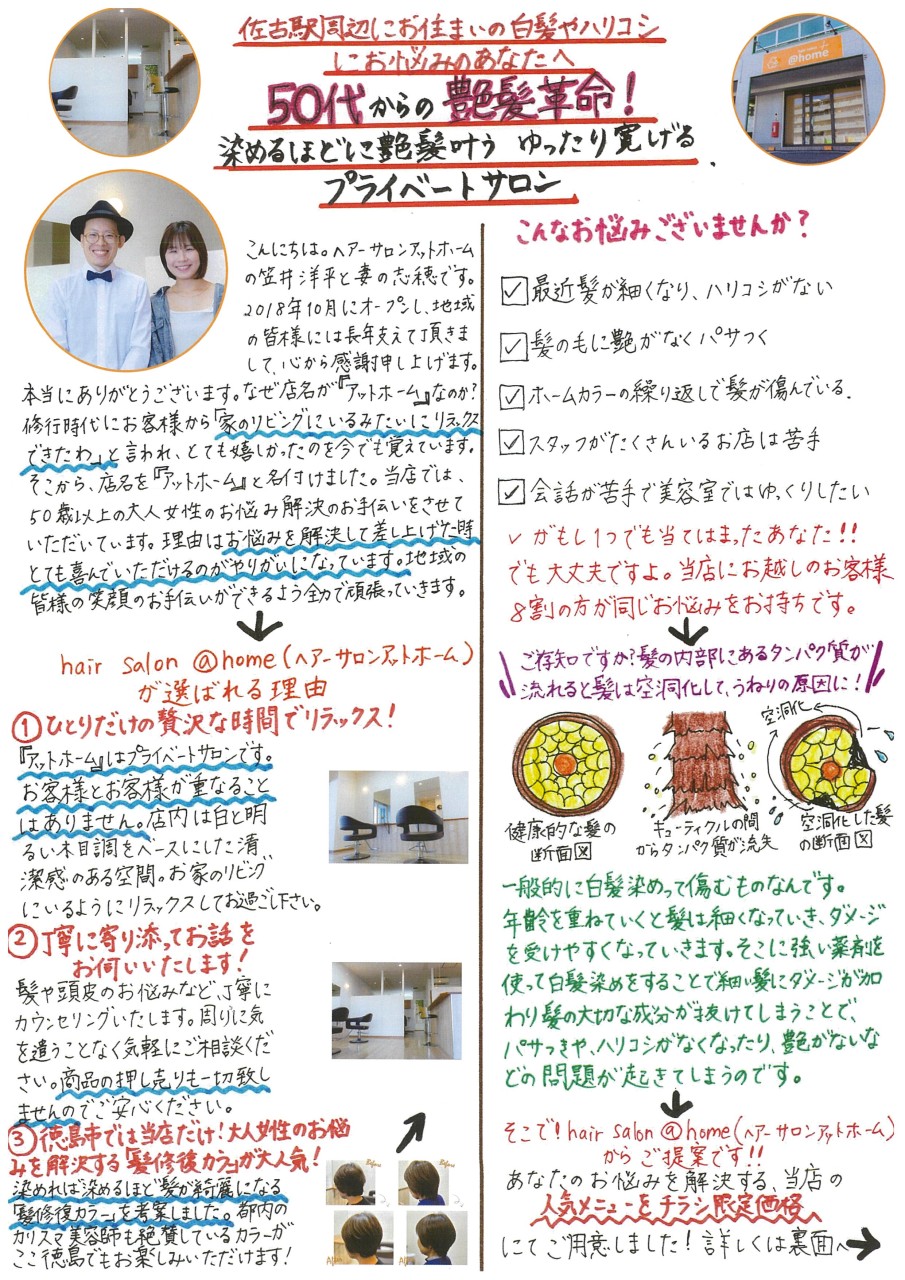 佐古駅周辺にお住まいの白髪やハリコシ
にお悩みのあなたへ
50代からの艶髪革命!
染めるほどに艶髪叶う ゆったり寛げる
プライベートサロン
hair salon
@home
こんにちは。ヘアーサロンアットホーム
の笠井洋平と妻の志穂です。
2018年10月にオープンし、地域
の皆様には長年支えて頂きま
して、心から感謝申し上げます。
本当にありがとうございます。なぜ店名が『アットホーム』なのか?
修行時代にお客様から「家のリビングにいるみたいにリラックス
できたわ」と言われ、とても嬉しかったのを今でも覚えています。
そこから、店名を『アットホーム』と名付けました。当店では、
50歳以上の大人女性のお悩み解決のお手伝いをさせて
いただいています。理由はお悩みを解決して差し上げた時
とても喜んでいただけるのがやりがいになっています。地域の
皆様の笑顔のお手伝いができるよう全力で頑張っていきます。
hair salon @home(ヘアーサロンアットホーム)
が選ばれる理由
①ひとりだけの贅沢な時間でリラックス!
『アットホーム』はプライベートサロンです。
お客様とお客様が重なること
はありません。店内は白と明
るい木目調をベースにした清
潔感のある空間。お家のリビング
にいるようにリラックスしてお過ご下さい。
②丁寧に寄り添ってお話を
お伺いいたします!
髪や頭皮のお悩みなど、丁寧に
カウンセリングいたします。周りに気
を遣うことなく気軽にご相談くだ
さい。商品の押し売りも一切致し
ませんのでご安心ください。
③徳島市では当店だけ!大人女性のお悩
みを解決する「髪修復カラー」が大人気!
染めれば染めるほど髪が綺麗になる
「髪修復カラー」を考案しました。都内の
カリスマ美容師も絶賛しているカラーが
ここ徳島でもお楽しみいただけます!
Before
Before
After
After
こんなお悩みございませんか?
☑最近髪が細くなり、ハリコシがない
☑髪のもに艶がなくパサつく
☑ホームカラーの繰り返しで髪が傷んでいる.
☑スタッフがたくさんいるお店は苦手
☑会話が苦手で美容室ではゆっくりしたい
✓がもし1つでも当てはまったあなた!!
でも大丈夫ですよ。当店にお越しのお客様
8割の方が同じお悩みをお持ちです。
ご存知ですか?髪の内部にあるタンパク質が
流れると髪は空洞化して、うねりの原因に!
空洞化
健康的な髪の
断面図
キューティクルの間
からタンパク質が流失
空洞化した髪
の断面図
一般的に白髪染めって傷むものなんです。
年齢を重ねていくと髪は細くなっていき、ダメージ
を受けやすくなっていきます。そこに強い薬剤を
使って白髪染めをすることで細い髪にダメージが加
わり髪の大切な成分が抜けてしまうことで、
パサつきや、ハリコシがなくなったり、艶がないな
どの問題が起きてしまうのです。
そこで!hair salon @home(ヘアーサロンアットホーム)
からご提案です!!
あなたのお悩みを解決する、当店の
人気メニューをチラシ限定価格
にてご用意しました!詳しくは裏面へ